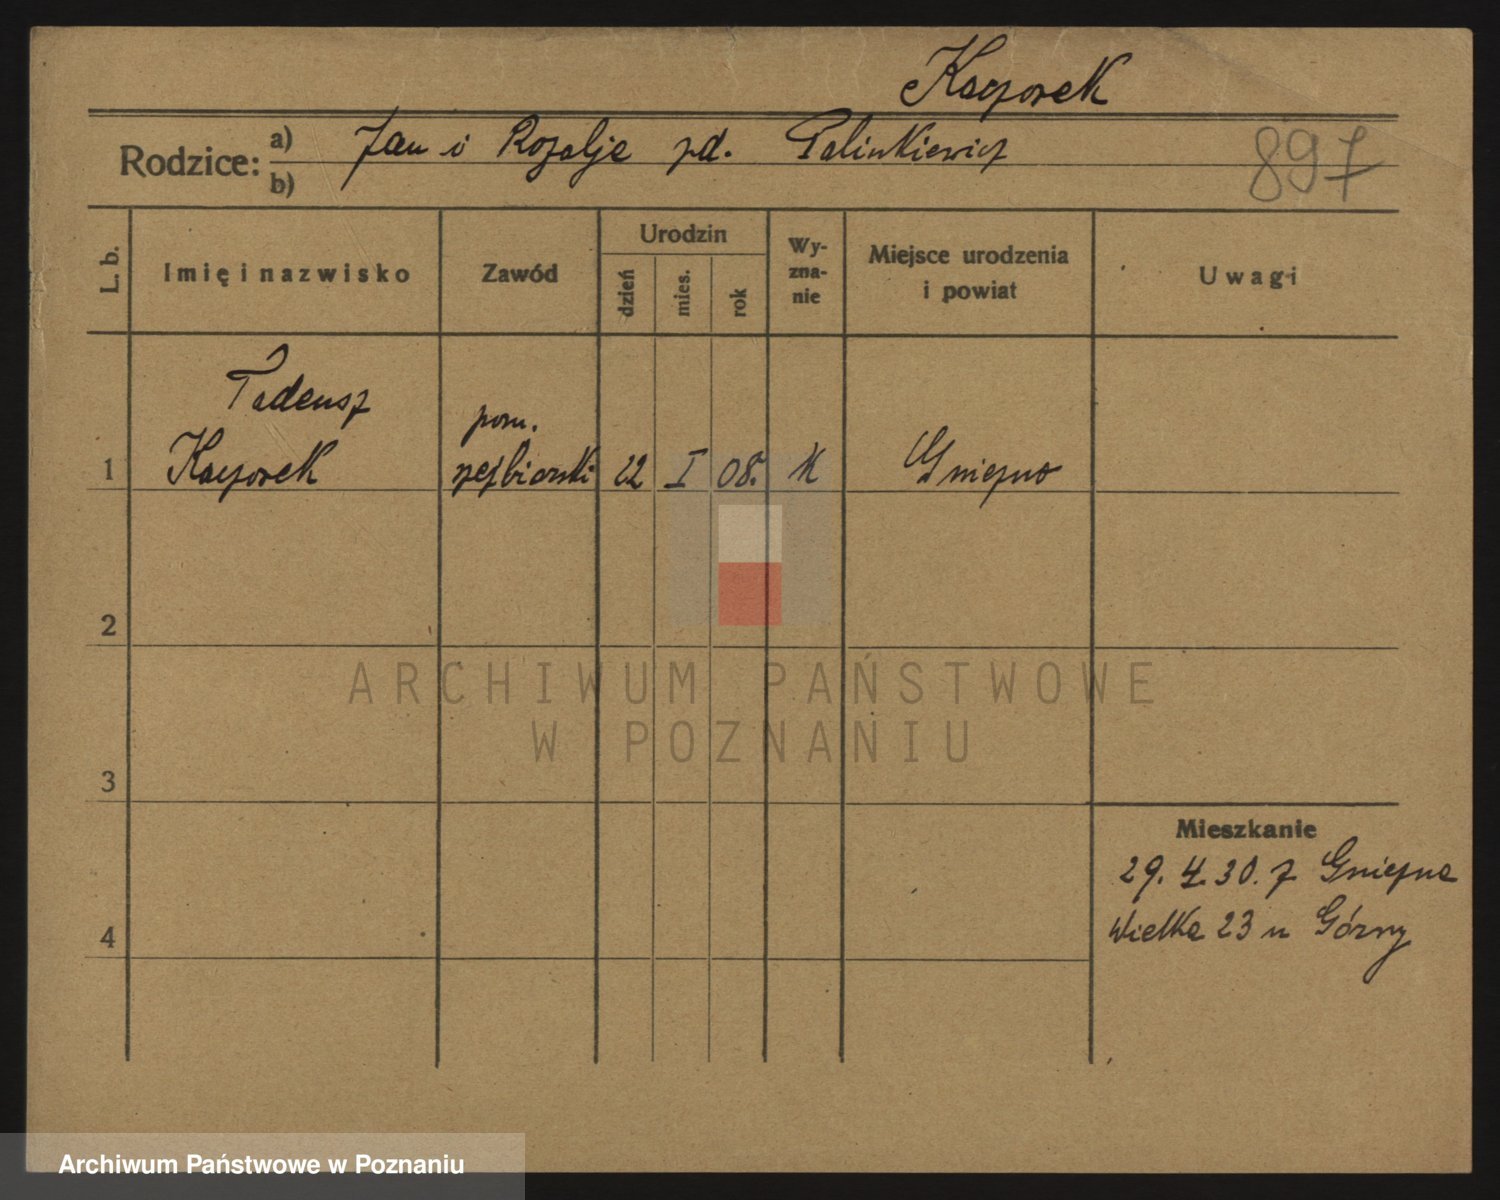 Kaczorek
Rodzice:
a) Jan i Rozalje zd. Palinkiewicz
b)
897
L. b.
Imię i nazwisko
Zawód
Urodzin
dzień
mies.
rok
Wy-
zna-
nie
Miejsce urodzenia
i powiat
Uwagi
Tadeusz
pom.
1 Kaczorek rzeźbiarski 22 I 08. K Gniezno
2
3
4
Mieszkanie
29. 4. 30. z Gniezna
Wielka 23 u Górny
ARCHIWUM PAŃSTWOWE
W POZNANIU
Archiwum Państwowe w Poznaniu